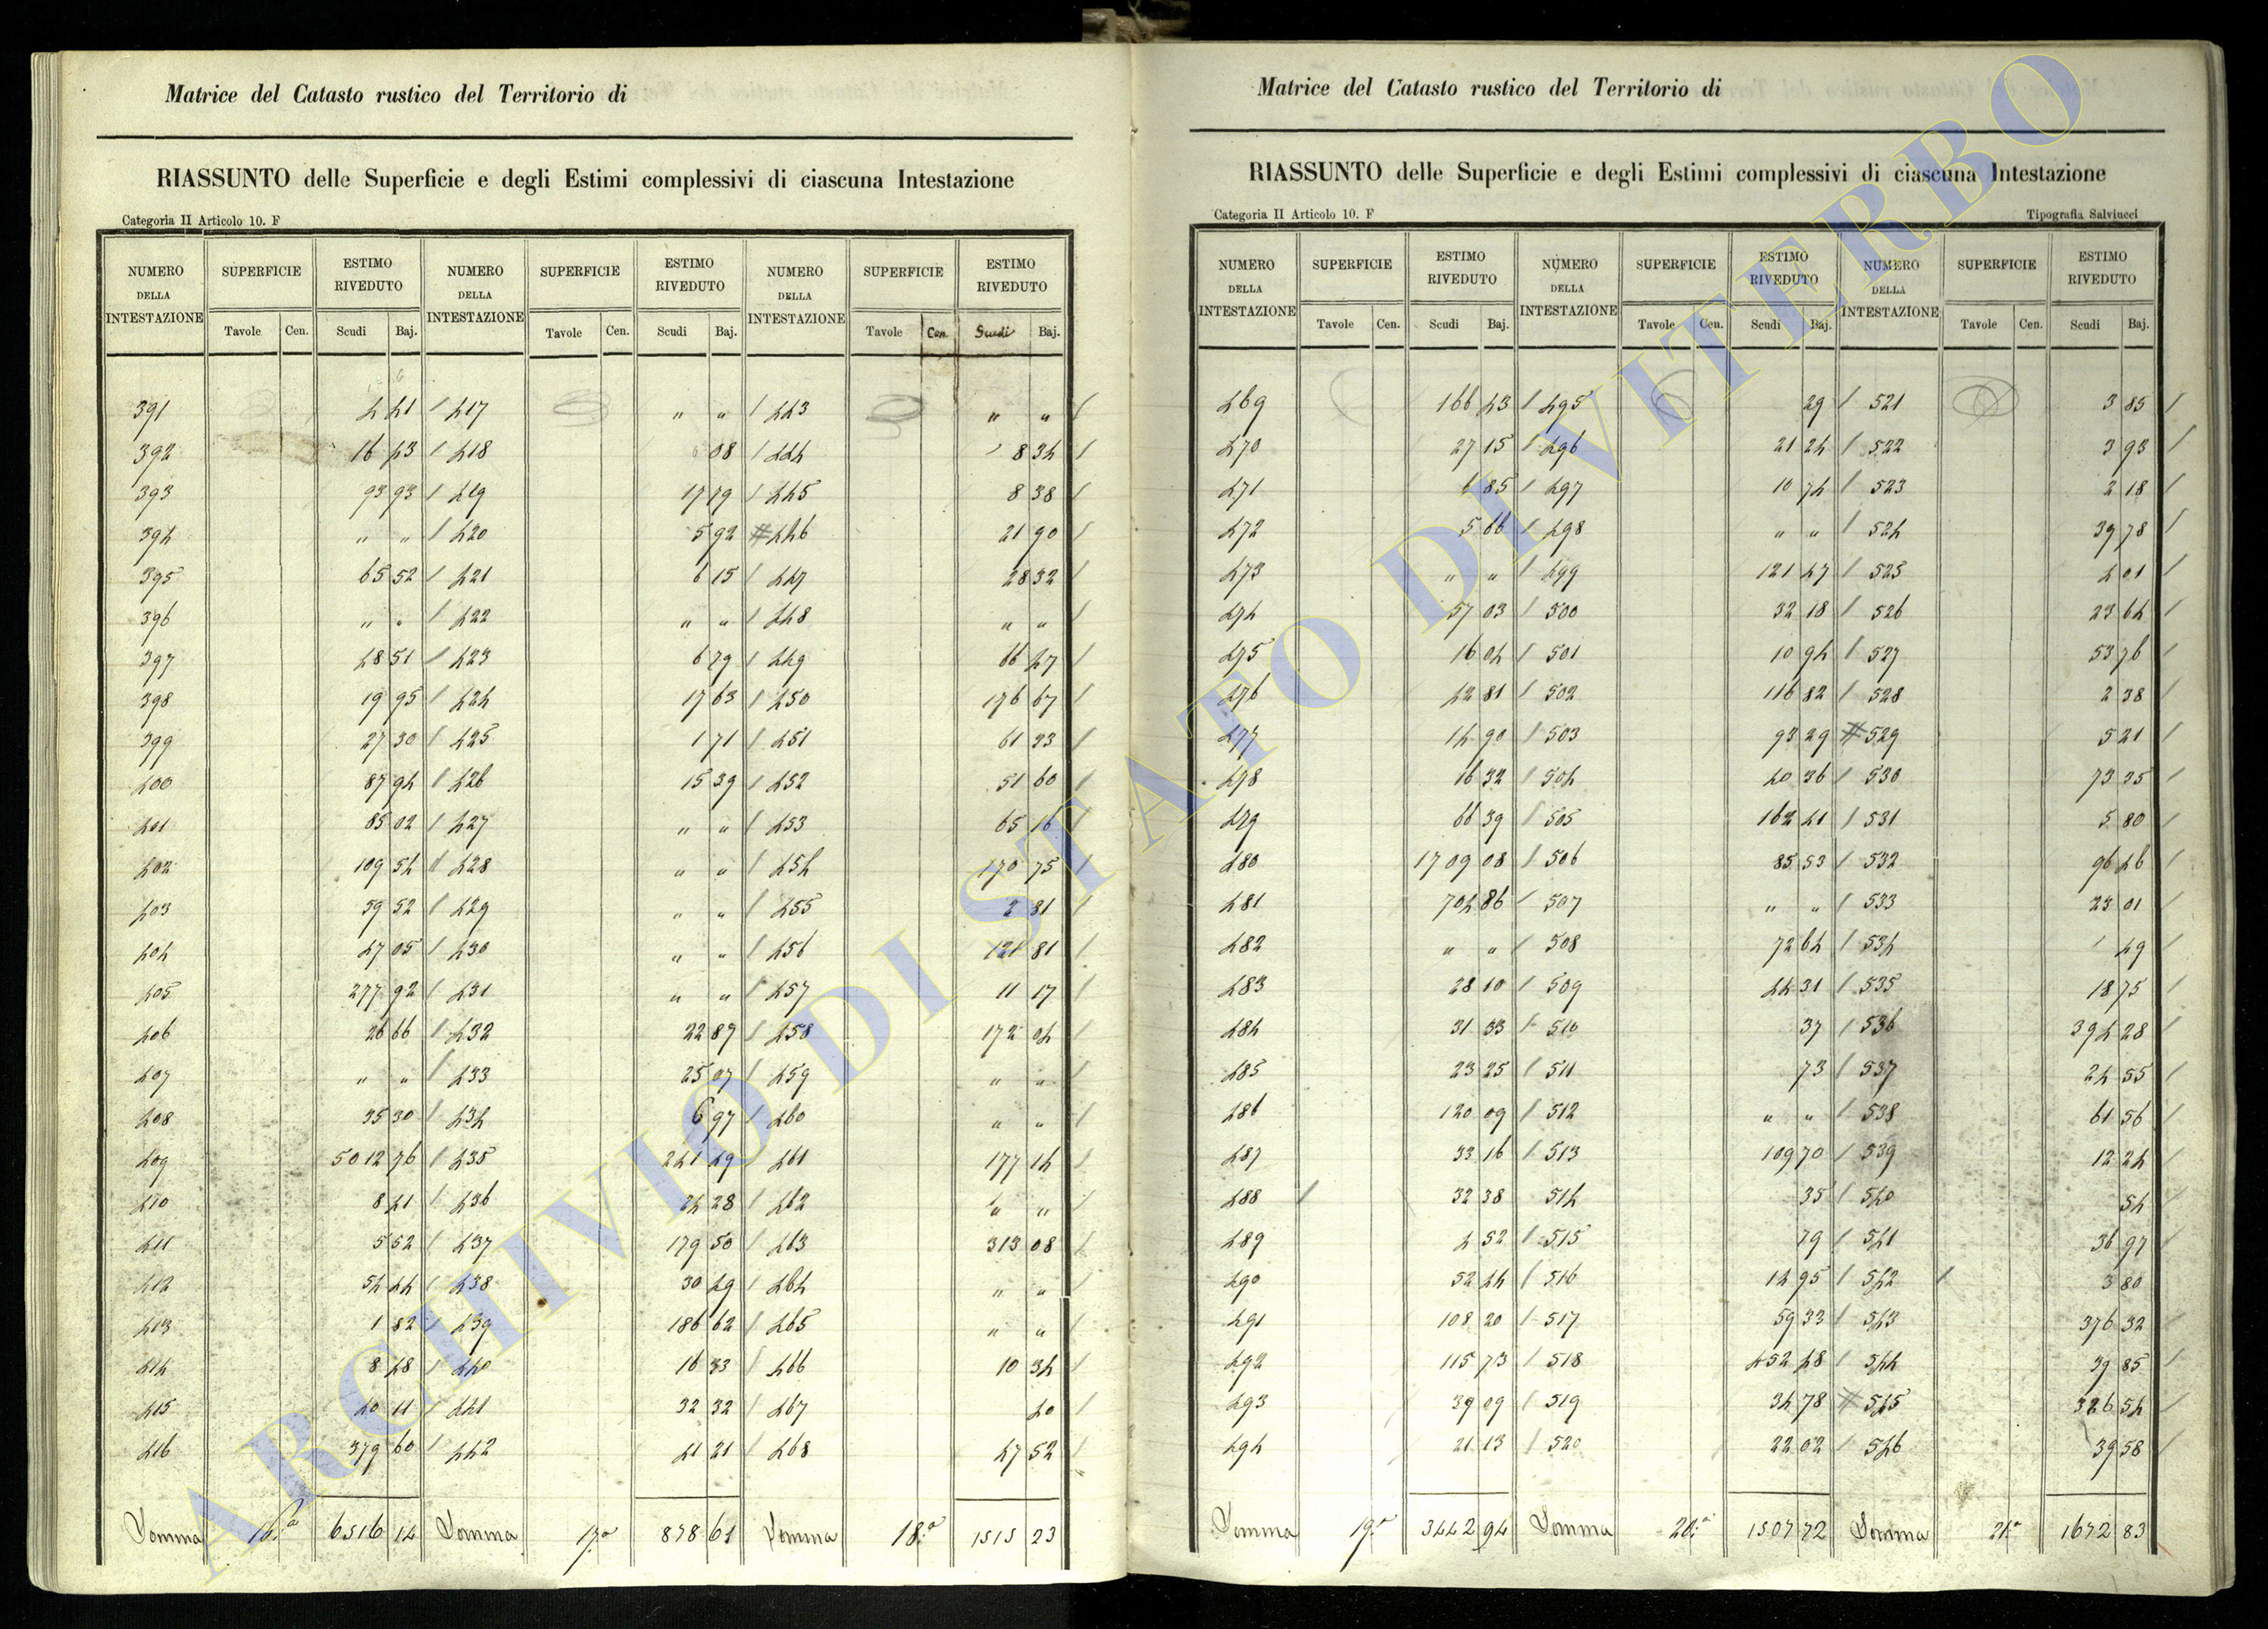 Matrice del Catasto rustico del Territorio di
RIASSUNTO delle Superficie e degli Estimi complessivi di ciascuna Intestazione
Categoria II Articolo 10. F
NUMERO DELLA INTESTAZIONE SUPERFICIE ESTIMO RIVEDUTO NUMERO DELLA INTESTAZIONE SUPERFICIE ESTIMO RIVEDUTO NUMERO DELLA INTESTAZIONE SUPERFICIE ESTIMO RIVEDUTO
Tavole Cen. Scudi Baj. Tavole Cen. Scudi Baj. Tavole Cen. Scudi Baj.
391 4 41 / 417 " " / 443 " " /
392 16 43 / 418 08 / 444 8 34 /
393 93 93 / 419 17 79 / 445 8 38 /
394 " " / 420 5 92 # 446 21 90 /
395 65 52 / 421 6 15 / 447 28 32 /
396 " " / 422 " " / 448 " " /
397 48 51 / 423 6 79 / 449 66 47 /
398 19 95 / 424 17 63 / 450 176 67 /
399 27 30 / 425 1 71 / 451 61 33 /
400 87 94 / 426 15 39 / 452 51 60 /
401 85 02 / 427 " " / 453 65 16 /
402 109 54 / 428 " " / 454 170 75 /
403 59 52 / 429 " " / 455 2 81 /
404 47 05 / 430 " " / 456 121 81 /
405 277 92 / 431 " " / 457 11 17 /
406 26 66 / 432 22 87 / 458 172 04 /
407 " " / 433 25 07 / 459 " " /
408 35 30 / 434 6 97 / 460 " " /
409 5012 76 / 435 241 49 / 461 177 14 /
410 8 41 / 436 24 28 / 462 " " /
411 5 52 / 437 179 50 / 463 313 08 /
412 54 44 / 438 30 49 / 464 " " /
413 1 82 / 439 186 62 / 465 " " /
414 8 48 / 440 16 33 / 466 10 34 /
415 40 11 / 441 32 32 / 467 40 /
416 379 60 / 442 41 21 / 468 47 52 /
Somma 16.a 6516 14 Somma 17.a 878 61 Somma 18.a 1515 23
Matrice del Catasto rustico del Territorio di
RIASSUNTO delle Superficie e degli Estimi complessivi di ciascuna Intestazione
Categoria II Articolo 10. F Tipografia Salviucci
NUMERO DELLA INTESTAZIONE SUPERFICIE ESTIMO RIVEDUTO NUMERO DELLA INTESTAZIONE SUPERFICIE ESTIMO RIVEDUTO NUMERO DELLA INTESTAZIONE SUPERFICIE ESTIMO RIVEDUTO
Tavole Cen. Scudi Baj. Tavole Cen. Scudi Baj. Tavole Cen. Scudi Baj.
469 166 43 / 495 29 / 521 3 85 /
470 27 15 / 496 21 24 / 522 3 93 /
471 6 85 / 497 10 74 / 523 2 18 /
472 5 66 / 498 " " / 524 39 78 /
473 " " / 499 121 47 / 525 4 01 /
474 57 03 / 500 32 18 / 526 23 64 /
475 16 04 / 501 10 94 / 527 53 76 /
476 42 81 / 502 116 82 / 528 2 38 /
477 14 90 / 503 93 29 # 529 5 21 /
478 16 32 / 504 40 36 / 530 73 25 /
479 66 39 / 505 162 41 / 531 5 80 /
480 1709 08 / 506 85 53 / 532 96 46 /
481 704 86 / 507 " " / 533 23 01 /
482 " " / 508 72 64 / 534 49 /
483 28 10 / 509 44 31 / 535 18 75 /
484 31 33 / 510 37 / 536 394 28 /
485 23 25 / 511 73 / 537 24 55 /
486 120 09 / 512 " " / 538 61 56 /
487 33 16 / 513 109 70 / 539 12 24 /
488 / 32 38 514 35 / 540 54 /
489 4 52 / 515 79 / 541 36 97 /
490 52 44 / 516 14 95 / 542 / 3 80
491 108 20 / 517 59 33 / 543 376 32 /
492 115 73 / 518 452 48 / 544 39 85 /
493 39 09 / 519 34 78 # 545 326 54 /
494 21 13 / 520 22 02 / 546 39 58 /
Somma 19.a 3442 94 Somma 20.a 1507 72 Somma 21.a 1672 83
ARCHIVIO DI STATO DI VITERBO